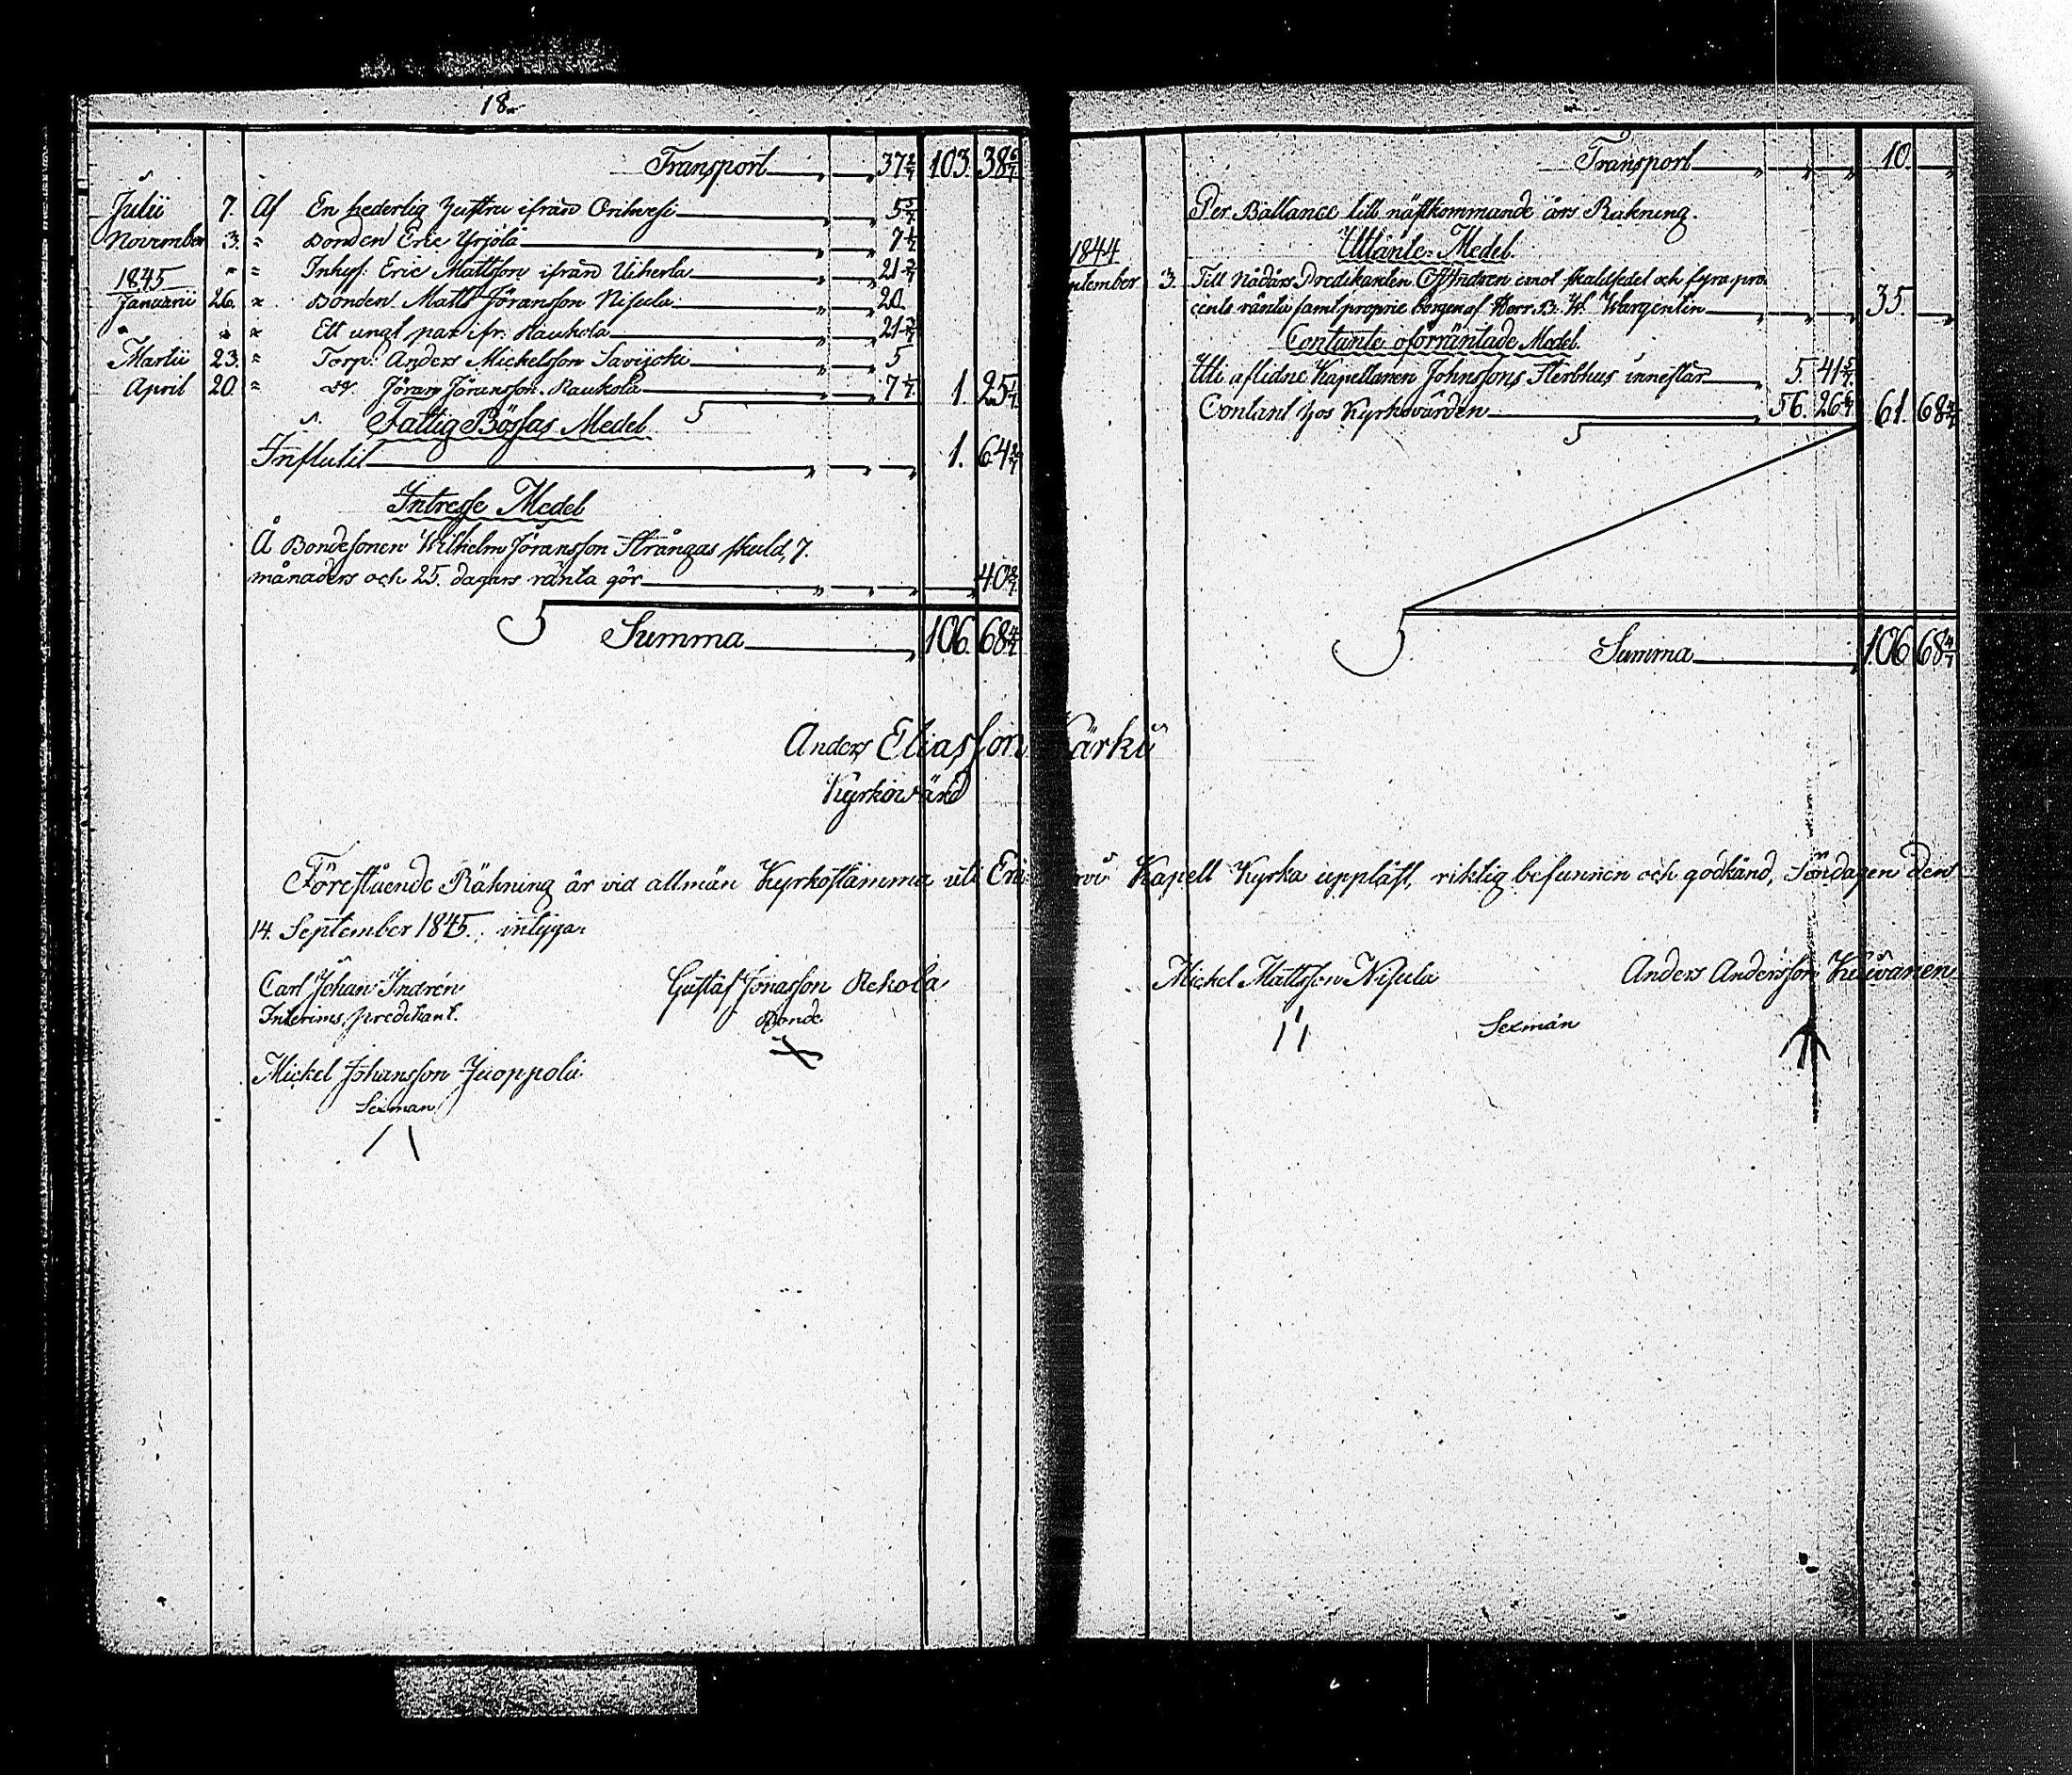 18.
Transport 37 2/7 103. 38 6/7
Julii 7. Af En hederlig Hustru ifrån Orihvesi 5 5/7
November 3. " Bonden Eric Yrjölä 7 1/7
" " Inhys: Eric Mattsson ifrån Uiherla 21 3/7
1845
Januarii 26. " Bonden Matts Jöransson Nisula 20
" " Ett ungt par ifr. Raukola 21 3/7
Martii 23. " Torp: Anders Mickelsson Savijoki 5
April 20. " dr. Jöran Jöransson Raukola 7 1/7 1. 25 1/7
Fattig Bössas Medel
Influtit 1. 64 2/7
Intresse Medel
Å Bondesonen Wilhelm Jöransson Strångas skuld, 7.
månaders och 25. dagars ränta gör 40 2/7
Summa 106. 68 4/7
Transport 10.
Per Ballance till nästkommande års Räkning.
Utlånte Medel.
1844
ptember 3. Till Nådårs Predikanten Indren emot skuldsedel och fyra pro
cents ränta samt proprie borgen af Herr B. W. Wargentin 35.
Contante oförräntade Medel.
Uti aflidne Kapellanen Johnssons Sterbhus innestår 5. 41 5/7
Contant hos Kyrkovärden 56. 26 6/7 61. 68 4/7
Summa 106 68 4/7
Anders Eliasson Kärki
Kyrkovärd
Förestående Räkning är vid allmän Kyrkostämma uti Eri rvi Kapell Kyrka uppläst, riktig befunnen och godkänd, Söndagen den
14. September 1845. intyga:
Carl Johan Indrén Gustaf Jonasson Rekola Mickel Mattsson Nisula Anders Andersson
Interims predikant. Bonde Sexman
Mickel Johansson Juoppola
Sexman